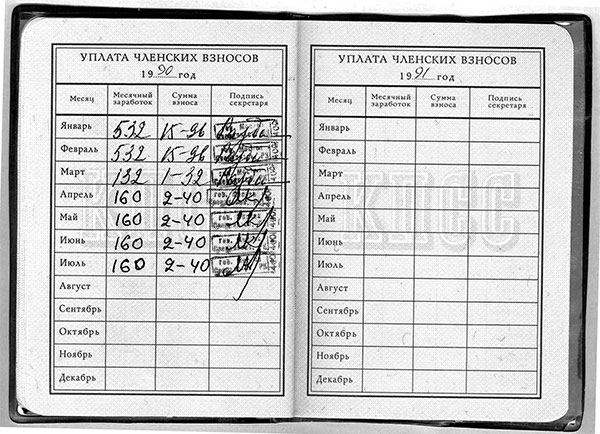 УПЛАТА ЧЛЕНСКИХ ВЗНОСОВ
1990 год
Месяц Месячный заработок Сумма взноса Подпись секретаря
Январь 532 15-96
Февраль 532 15-96
Март 132 1-32
Апрель 160 2-40
Май 160 2-40
Июнь 160 2-40
Июль 160 2-40
Август
Сентябрь
Октябрь
Ноябрь
Декабрь
КПСС
УПЛАТА ЧЛЕНСКИХ ВЗНОСОВ
1991 год
Месяц Месячный заработок Сумма взноса Подпись секретаря
Январь
Февраль
Март
Апрель
Май
Июнь
Июль
Август
Сентябрь
Октябрь
Ноябрь
Декабрь
КПСС